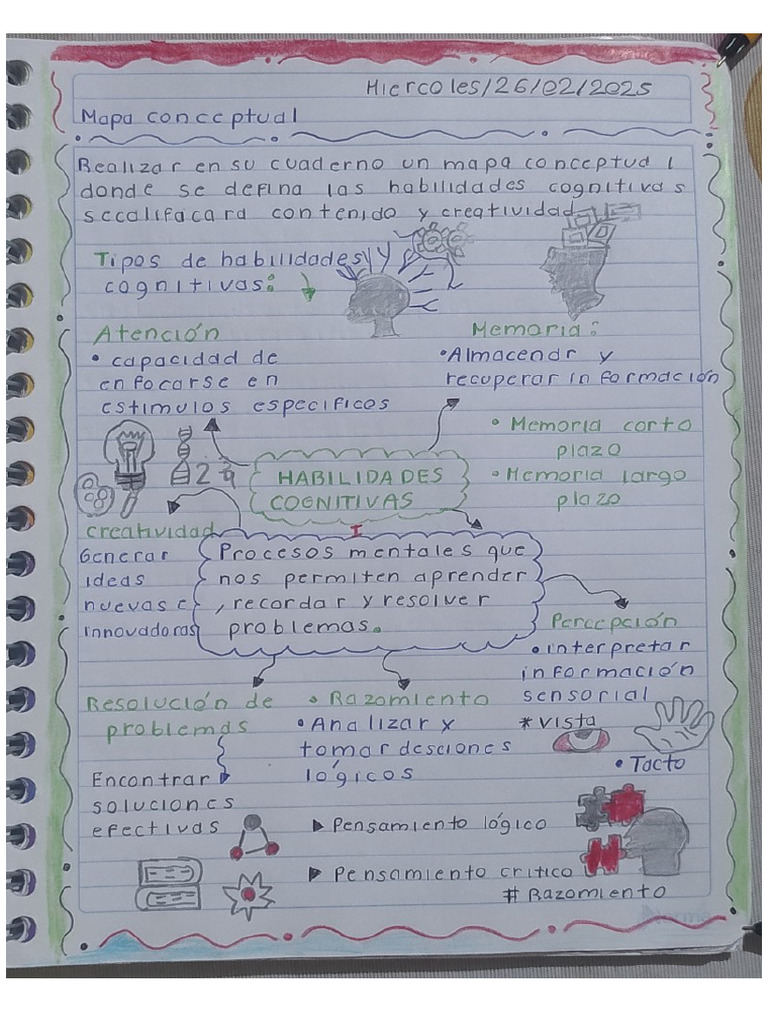 Miercoles/26/02/2025
Mapa conceptual
Realizar en su cuaderno un mapa conceptual
donde se defina las habilidades cognitivas
secalifacara contenido y creatividad
Tipos de habilidades y
cognitivas:
Atención
• capacidad de
enfocarse en
estimulos especificos
Memoria:
• Almacenar y
recuperar información
• Memoria corto
plazo
• Memoria largo
plazo
HABILIDADES
COGNITIVAS
Procesos mentales que
nos permiten aprender
, recordar y resolver
problemas.
creatividad
Generar
ideas
nuevas e
innovadoras
Percepción
• interpretar
información
sensorial
* Vista
• Tacto
Resolución de
problemas
Encontrar
soluciones
efectivas
• Razomiento
• Analizar y
tomar desciones
lógicos
▶ Pensamiento lógico
▶ Pensamiento critico
# Razomiento